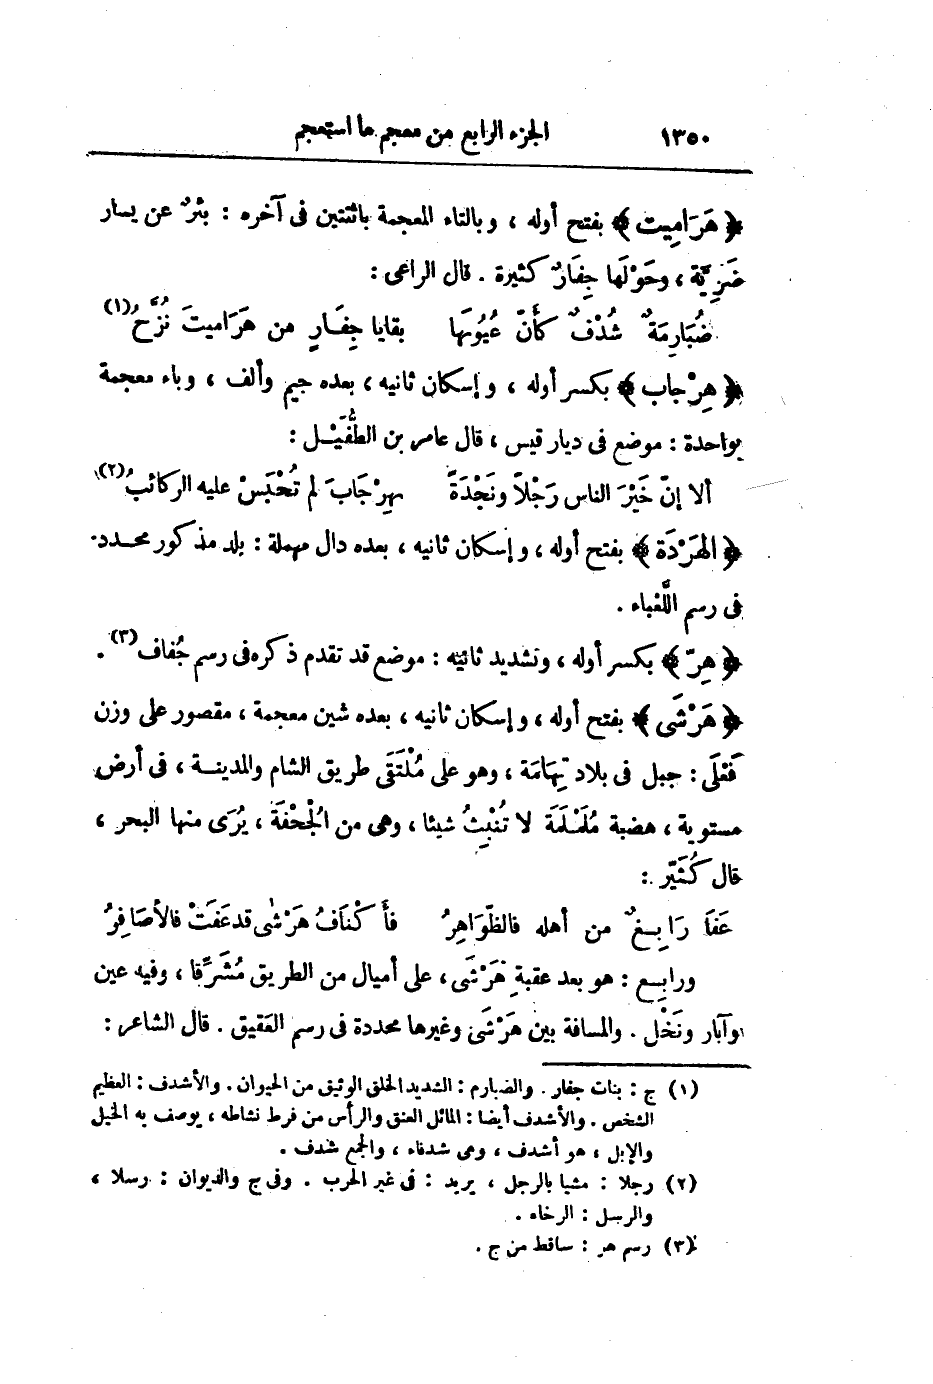 ١٣٥٠ الجزء الرابع من معجم ما استعجم
﴿ هَرَاميت ﴾ بفتح أوله ، وبالتاء المعجمة باثنتين فى آخره : بئرٌ عن يسار
ضَرِيَّة ، وحَوْلَها جِفَارٌ كثيرة . قال الراعى :
ضُبَارِمَةٌ شُدْفٌ كأَنّ عُيُونَها بقايا جِفَارٍ من هَرَاميتَ نُزَّحُ(١)
﴿ هِرْجاب ﴾ بكسر أوله ، وإسكان ثانيه ، بعده جيم وألف ، وباء معجمة
بواحدة : موضع فى ديار قيس ، قال عامر بن الطُّفَيْل :
ألا إنّ خَيْرَ الناس رَجْلاً ونَجْدَةً بهِرْجَابَ لم تُحْبَسْ عليه الركائبُ(٢)
﴿ الهَرْدَة ﴾ بفتح أوله ، وإسكان ثانيه ، بعده دال مهملة : بلد مذكور محدد
فى رسم اللَّعْباء .
﴿ هِرّ ﴾ بكسر أوله ، وتشديد ثانيه : موضع قد تقدم ذكره فى رسم جُفاف(٣) .
﴿ هَرْشَى ﴾ بفتح أوله ، وإسكان ثانيه ، بعده شين معجمة ، مقصور على وزن
فَعْلَى : جبل فى بلاد تِهَامَة ، وهو على مُلْتَقَى طريق الشام والمدينة ، فى أرض
مستوية ، هضبة مُلَمْلَمَة لا تُنْبِتُ شيئا ، وهى من الجُحْفَة ، يُرَى منها البحر ،
قال كُثَيّر :
عَفَا رَابِغٌ من أهله فالظَّوَاهِرُ فأَكْنَافُ هَرْشَى قد عَفَتْ فالأصَافِرُ
ورابغ : هو بعد عقبة هَرْشَى ، على أميال من الطريق مُشَرِّقا ، وفيه عين
وآبار ونَخْل . والمسافة بين هَرْشَى وغيرها محددة فى رسم العقيق . قال الشاعر :
(١) ج : بنات جفار . والضبارم : الشديد الخلق الوثيق من الحيوان . والأشدف : العظيم
الشخص . والأشدف أيضا : المائل العنق والرأس من فرط نشاطه ، يوصف به الخيل
والإبل ، هو أشدف ، وهى شدفاء ، والجمع شدف .
(٢) رجلا : مشيا بالرجل ، يريد : فى غير الحرب . وفى ج والديوان : رسلا ،
والرسل : الرخاء .
(٣) رسم هر : ساقط من ج .